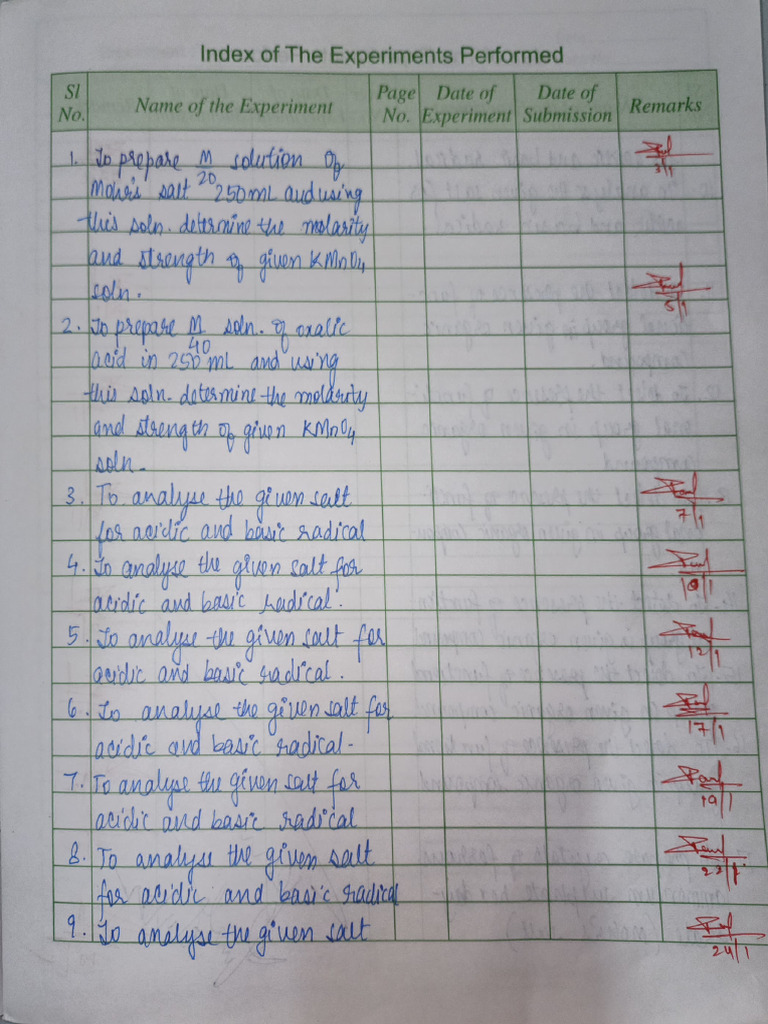 Index of The Experiments Performed
Sl No. Name of the Experiment Page No. Date of Experiment Date of Submission Remarks
1. To prepare M/20 solution of
Mohr's salt 250mL and using
this soln. determine the molarity
and strength of given KMnO4
soln.
3/1
5/1
2. To prepare M/40 soln. of oxalic
acid in 250 mL and using
this soln. determine the molarity
and strength of given KMnO4
soln.
3. To analyse the given salt
for acidic and basic radical
7/1
4. To analyse the given salt for
acidic and basic radical.
10/1
5. To analyse the given salt for
acidic and basic radical.
12/1
6. To analyse the given salt for
acidic and basic radical.
17/1
7. To analyse the given salt for
acidic and basic radical
19/1
8. To analyse the given salt
for acidic and basic radical
9. To analyse the given salt
24/1